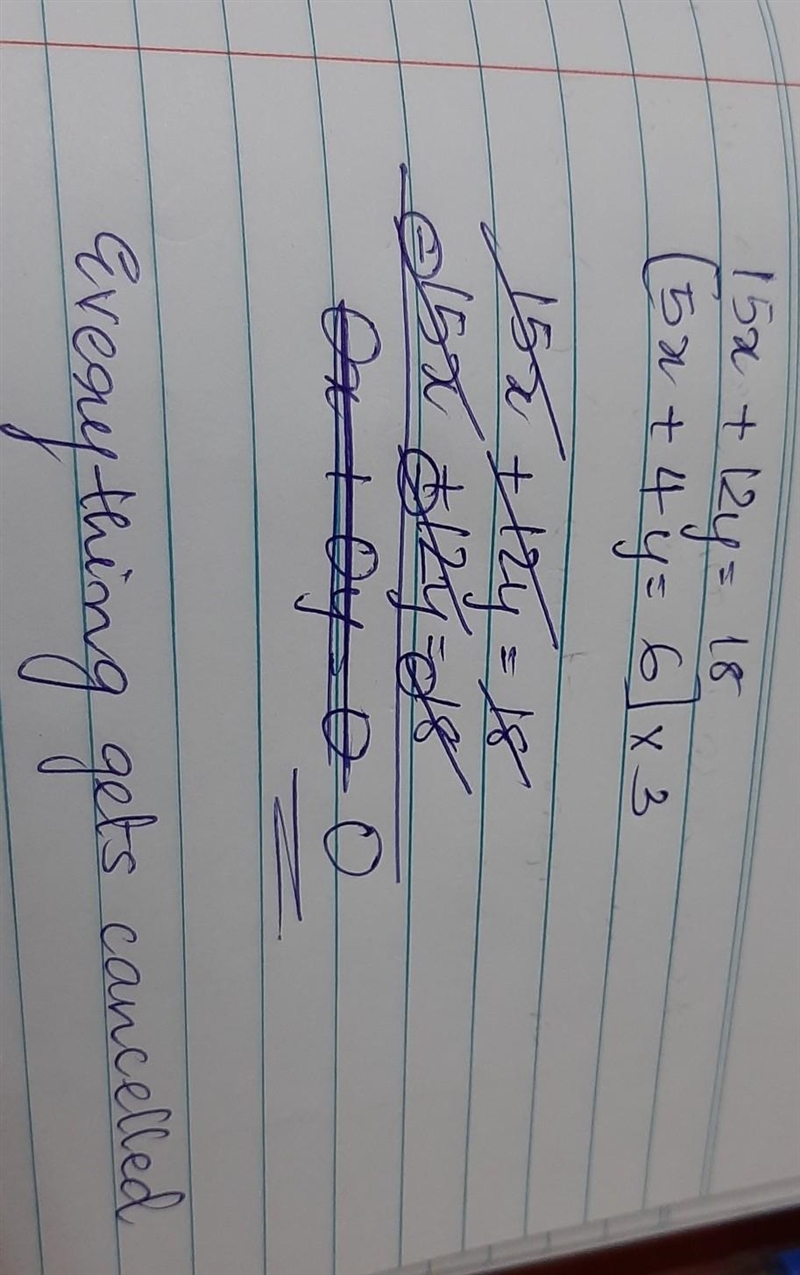 15x + 12y = 18
(5x + 4y = 6] x 3
15x + 12y = 18
- 15x + 12y = - 18
0x + 0y = 0 0
Everything gets cancelled